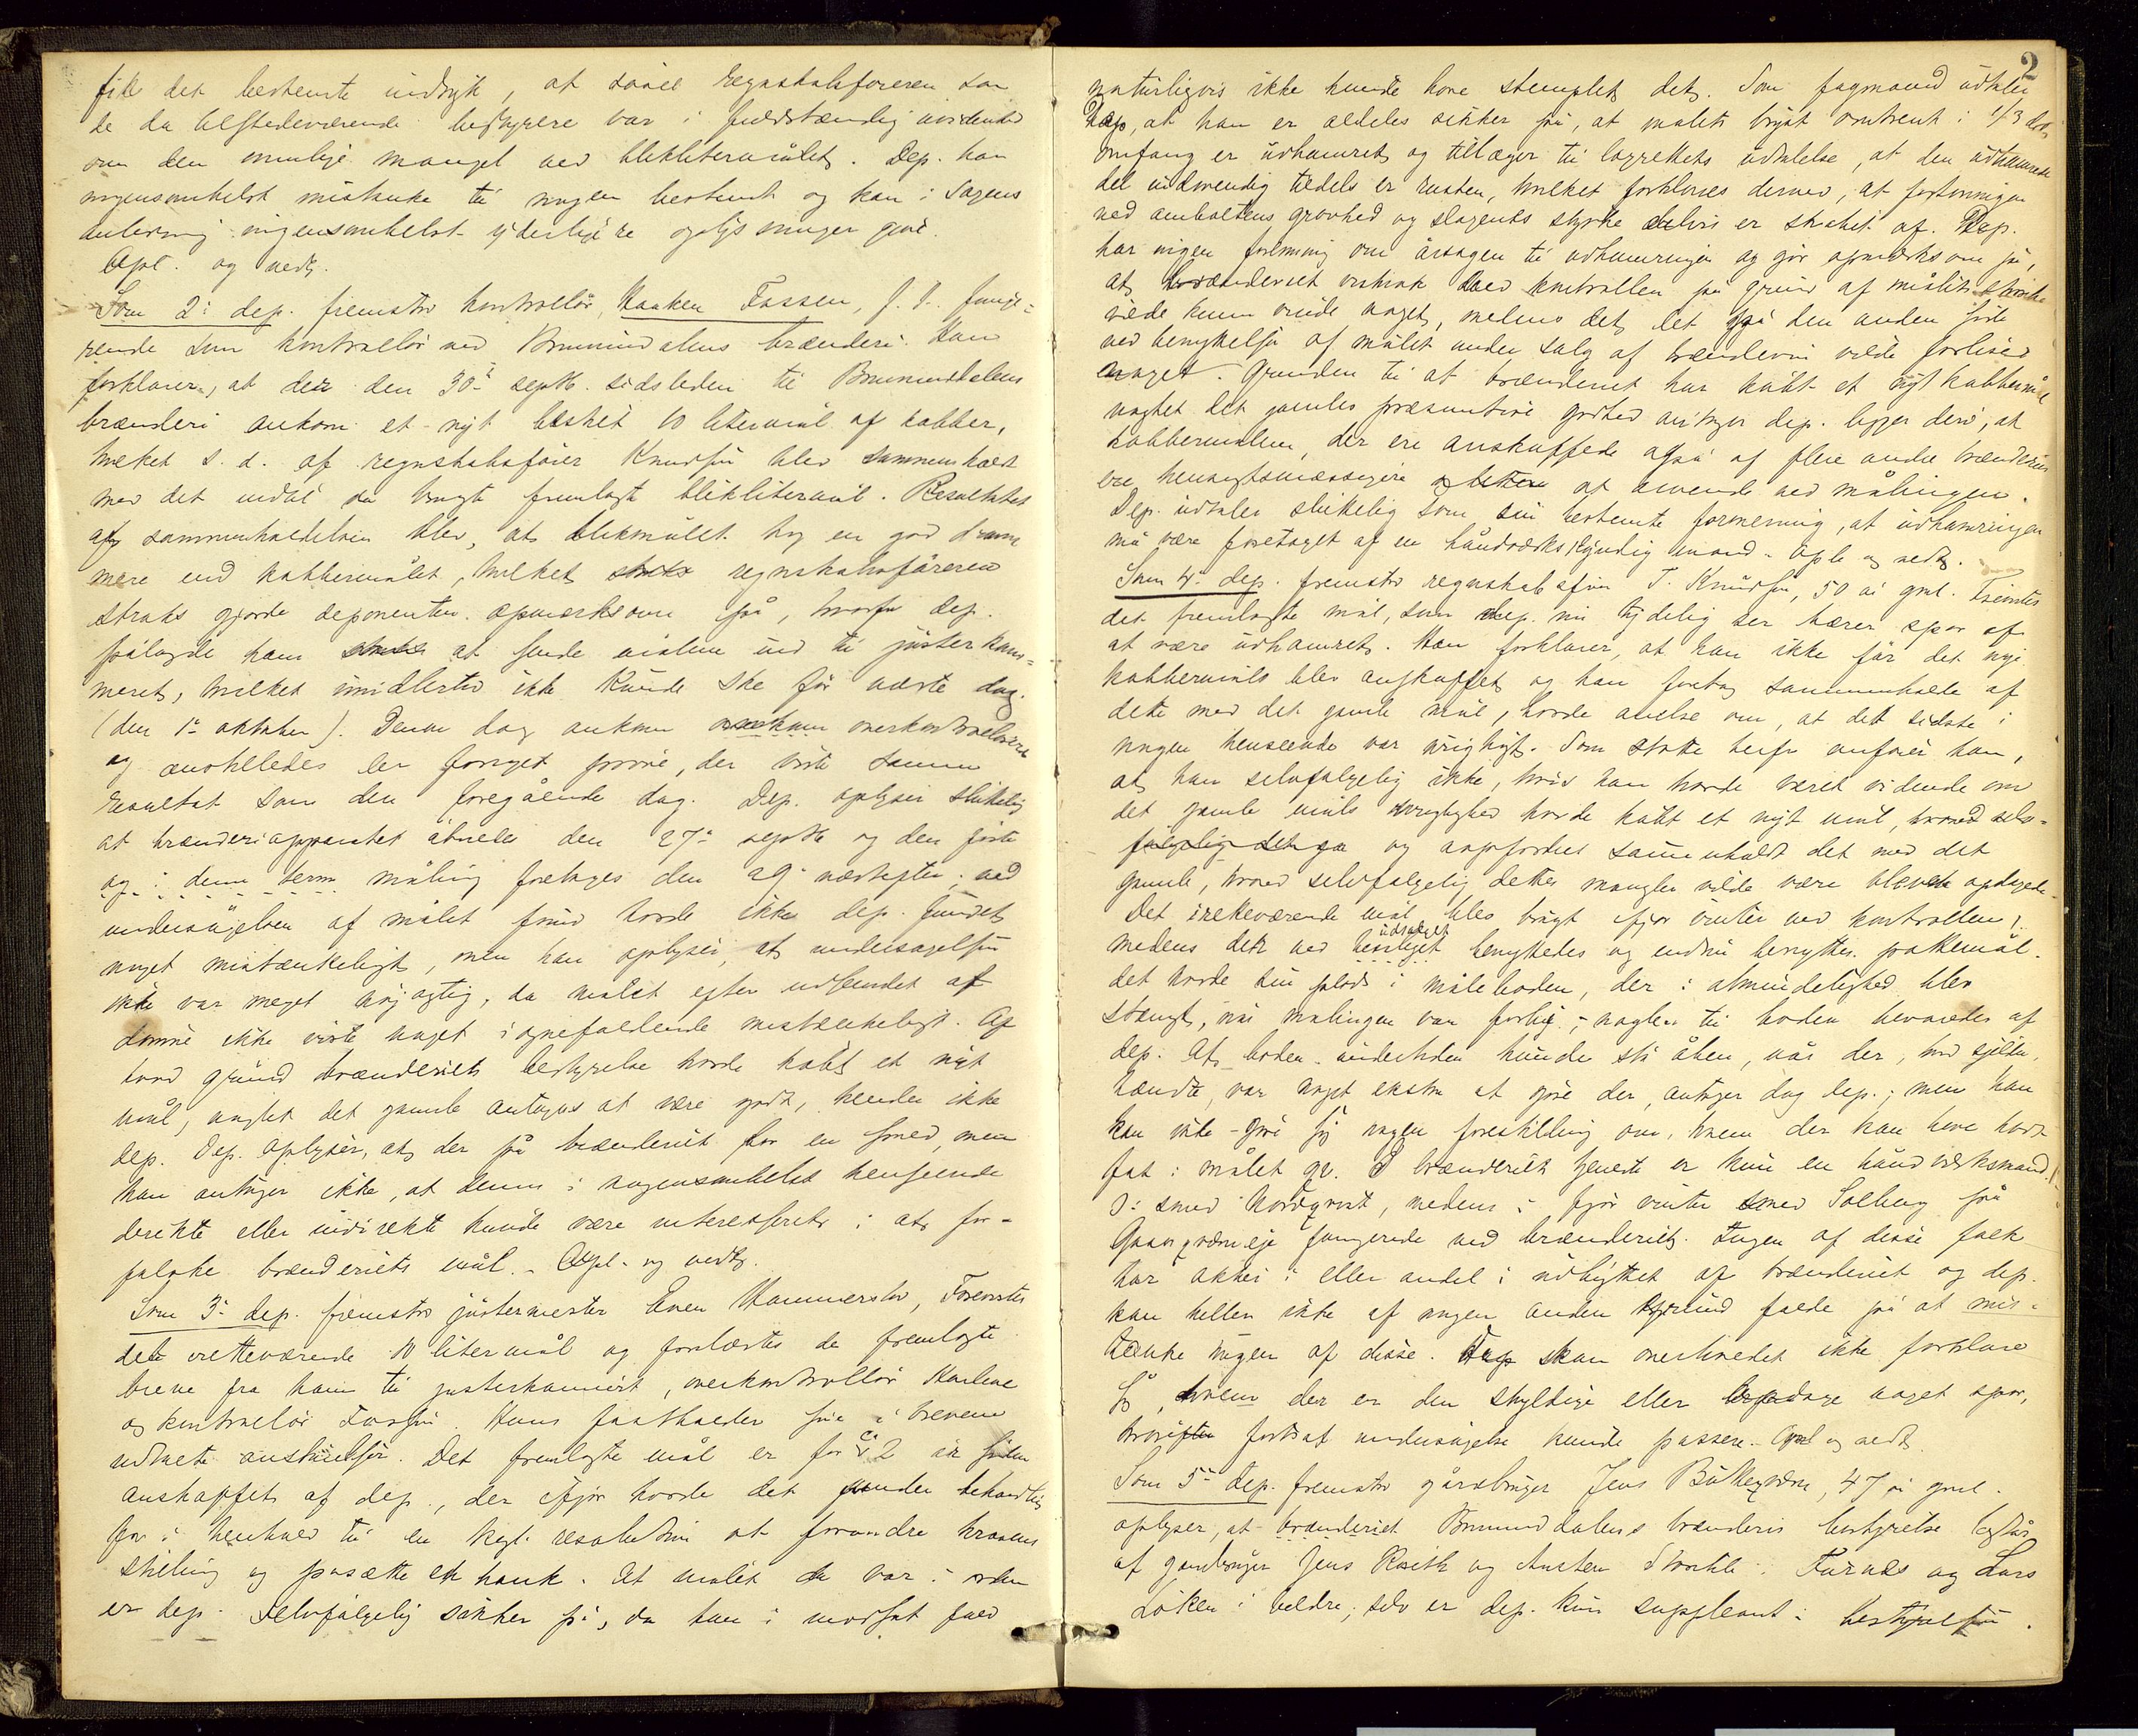 fik det bestemte indtryk, at såvel regnskabsføreren som
de da tilstedeværende bestyrere var i fuldstændig uvidenhed
om den mulige mangel ved bliklitermålet. Dep. har
ingensomhelst mistanke til nogen bestemt og kan i sagens
anledning ingensomhelst yderligere oplysninger give.
Opl. og vedt.
Som 2: dep. fremstod kontrollør Haaken Fossen, f. t. funge=
rende som kontrollør ved Brumunddalens brænderi. Han
forklarer, at der den 30: septb. sidstleden til Brumunddalens
brænderi ankom et nyt 10 litermål af kobber,
hvilket s. d. af regnskabsfører Knudsen blev sammenholdt
med det indtil da brugte fremlagte bliklitermål. Resultatet
af sammenholdelsen blev, at blikmålet tog en god dram
mere end kobbermålet, hvilket regnskabsføreren
straks gjorde deponenten opmærksom på, hvorfor dep.
pålagde ham at sende målene ind til justerkam=
meret, hvilket imidlertid ikke kunde ske før næste dag.
(den 1: oktober). Denne dag ankom overkontrolløren
og anstilledes der fornyet prøve, der viste samme
resultat som den foregående dag. Dep. oplyser
at brænderiapparatet åbnedes den 27: septb og den første
og i denne termin måling foretoges den 29: næstefter; ved
undersøgelsen af målet havde ikke dep. fundet
noget mistænkeligt, men han oplyser, at undersøgelsen
ikke var meget nøjagtig, da målet efter udseendet at
dømme ikke viste noget iøjnefaldende mistænkeligt. Af
hvad grund brænderiets bestyrelse havde købt et nyt
mål, uagtet det gamle antoges at være godt, kender ikke
dep. Dep. oplyser, at der på brænderiet har en smed, men
han antager ikke, at denne i nogensomhelst henseende
direkte eller indirekte kunde være interesseret i at for=
falske brænderiets mål. - Opl. og vedt.
Som 3: dep. fremstod justermester Even Hammerstad, Forevistes
det retteværende 10 litermål og forelæstes de fremlagte
breve fra ham til justerkammeret, overkontrollør
og kontrollør Fossen. Hans fastholder sine i brevene
udtalte anskuelser. Det fremlagte mål er for 2 år siden
anskaffet af dep., der ifjor havde det under behandling
for i henhold til en kgl. resolution at forandre kranens
stilling og påsætte et hank. At målet da var i orden
er dep. selvfølgelig sikker på, da han i modsat fald
2
naturligvis ikke kunde have stemplet det. Som fagmand udtaler
Dep, at han er aldeles sikker på, at målets bryst omtrent i 1/3 dets
omfang er udhamret og tillægger til lagrettets udtalelse, at den udhamrede
del indvendig tildels er rusten, hvilket forklares derved, at fortinningen
ved amboltens grovhed og slagenes styrke delvis er skabet af. Dep.
har ingen formening om årsagen til udhamringen og gjør opmærksom på,
at brænderiet ved kontrollen på grund af målets størrelse
vilde kunne vinde noget, medens det på den anden side
ved benyttelse af målet under salg af brændevin vilde forlise
noget. Grunden til at brænderiet har købt et nyt kobbermål
uagtet det gamles præsumtive godhed antager dep. ligger deri, at
kobbermålene, der ere anskaffede også af flere andre brænderier
ere hensigtsmæssigere at anvende ved målingen.
Dep. udtaler som sin bestemte formening, at udhamringen
må være foretaget af en håndværkskyndig mand. - Opl. og vedt.
Som 4: dep. fremstod regnskabsfører T. Knudsen, 50 år gml. Forevistes
det fremlagte mål, som dep. nu tydelig ser bærer spor af
at være udhamret. Han forklarer, at han ikke før det nye
kobbermål blev anskaffet og han foretog sammenholdt af
dette med det gamle mål, havde anelse om, at det sidste i
nogen henseende var urigtigt. Som støtte herfor anfører han,
at han selvfølgelig ikke, hvis han havde været vidende om
det gamle måls urigtighed havde købt et nyt mål,
og uopfordret sammenholdt det med det
gamle, hvorved selvfølgelig dettes mangler vilde være blevet opdagede.
Det irekeværende mål blev brugt ifjor vinter ved kontrollen,
medens der ved udsalget benyttedes og endnu benyttes pottemål.
det havde sin plads i målboden, der i almindelighed blev
stængt, når målingen var forbi; - nøglen til boden bevaredes af
dep. At boden undertiden kunde stå åben, når der, hvad sjelden
hændte, var noget ekstra at gjøre der, antager dog dep.; men han
kan ikke gjøre sig nogen forestilling om, hvem der kan have havt
fat i målet. I brænderiets tjeneste er kun en håndværksmand,
o: smed Nordqvist, medens i fjor vinter smed Solberg på
fungerede ved brænderiet. Ingen af disse folk
har aktier i eller andel i udbyttet af brænderiet og dep.
kan heller ikke af nogen anden grund falde på at mis=
tænke nogen af disse. Dep kan overhovedet ikke forklare
sig, hvem der er den skyldige eller opdage noget spor,
hvorefter fortsat undersøgelse kunde passere. Opl og vedt.
Som 5: dep. fremstod gårdbruger Jens Bukkeqvern, 47 år gml.
oplyser, at Brumunddalens brænderis bestyrelse består
af gårdbruger Jens og i Furnes og Lars
Løken i Veldre, selv er dep. kun suppleant i bestyrelsen.